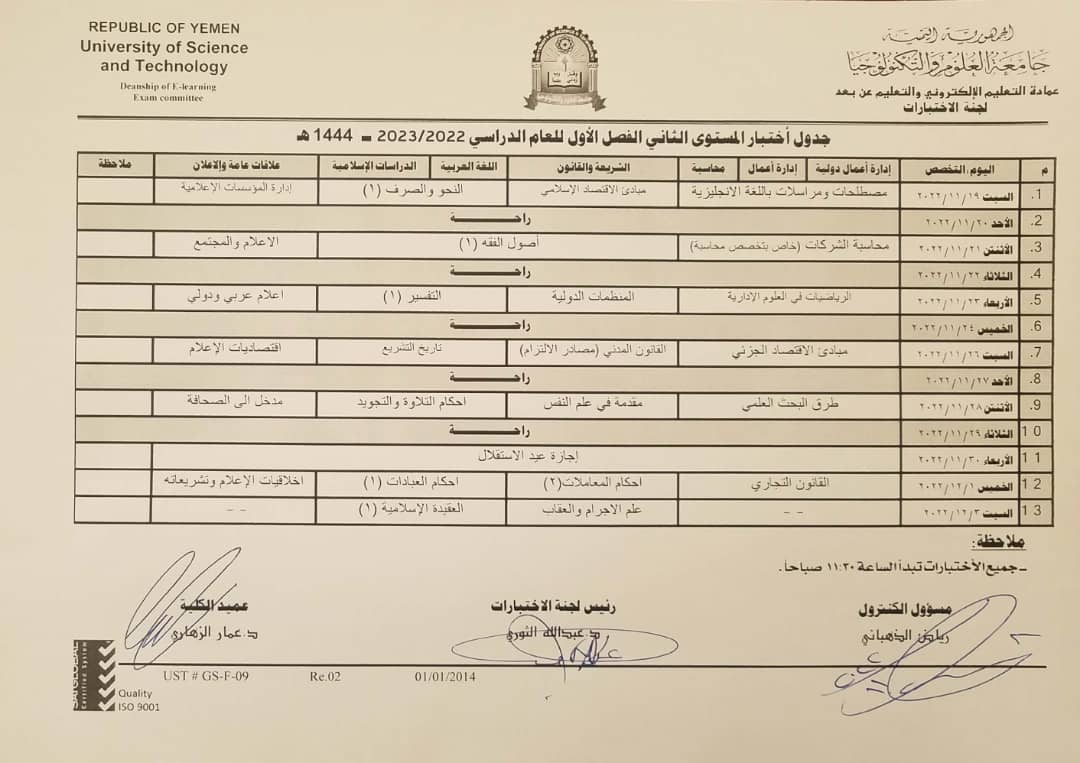 REPUBLIC OF YEMEN
University of Science
and Technology
Deanship of E-learning
Exam committee
الجمهورية اليمنية
جامعة العلوم والتكنولوجيا
عمادة التعليم الإلكتروني والتعليم عن بعد
لجنة الاختبارات
جدول أختبار المستوى الثاني الفصل الأول للعام الدراسي 2023/2022 – 1444 هـ
م اليوم/التخصص إدارة أعمال دولية إدارة أعمال محاسبة الشريعة والقانون اللغة العربية الدراسات الإسلامية علاقات عامة والإعلان ملاحظة
1. السبت ٢٠٢٢/١١/١٩ مصطلحات ومراسلات باللغة الانجليزية مبادئ الاقتصاد الإسلامي النحو والصرف (١) إدارة المؤسسات الإعلامية
2. الأحد ٢٠٢٢/١١/٢٠ راحـــــــة
3. الأثنين ٢٠٢٢/١١/٢١ محاسبة الشركات (خاص بتخصص محاسبة) أصول الفقه (١) الاعلام والمجتمع
4. الثلاثاء ٢٠٢٢/١١/٢٢ راحـــــــة
5. الأربعاء ٢٠٢٢/١١/٢٣ الرياضيات في العلوم الإدارية المنظمات الدولية التفسير (١) اعلام عربي ودولي
6. الخميس ٢٠٢٢/١١/٢٤ راحـــــــة
7. السبت ٢٠٢٢/١١/٢٦ مبادئ الاقتصاد الجزئي القانون المدني (مصادر الالتزام) تاريخ التشريع اقتصاديات الإعلام
8. الأحد ٢٠٢٢/١١/٢٧ راحـــــــة
9. الأثنين ٢٠٢٢/١١/٢٨ طرق البحث العلمي مقدمة في علم النفس احكام التلاوة والتجويد مدخل الى الصحافة
10 الثلاثاء ٢٠٢٢/١١/٢٩ راحـــــــة
11 الأربعاء ٢٠٢٢/١١/٣٠ إجازة عيد الاستقلال
12 الخميس ٢٠٢٢/١٢/١ القانون التجاري احكام المعاملات(٢) احكام العبادات (١) اخلاقيات الإعلام وتشريعاته
13 السبت ٢٠٢٢/١٢/٣ - - علم الاجرام والعقاب العقيدة الإسلامية (١) - -
ملاحظة:
- جميع الأختبارات تبدأ الساعة ١١:٣٠ صباحاً.
مسؤول الكنترول رئيس لجنة الاختبارات عميد الكلية
رياض الذهباني د.عبدالله الثوري د.عمار الزهاري
UST # GS-F-09 Re.02 01/01/2014
Certified System
Quality
ISO 9001